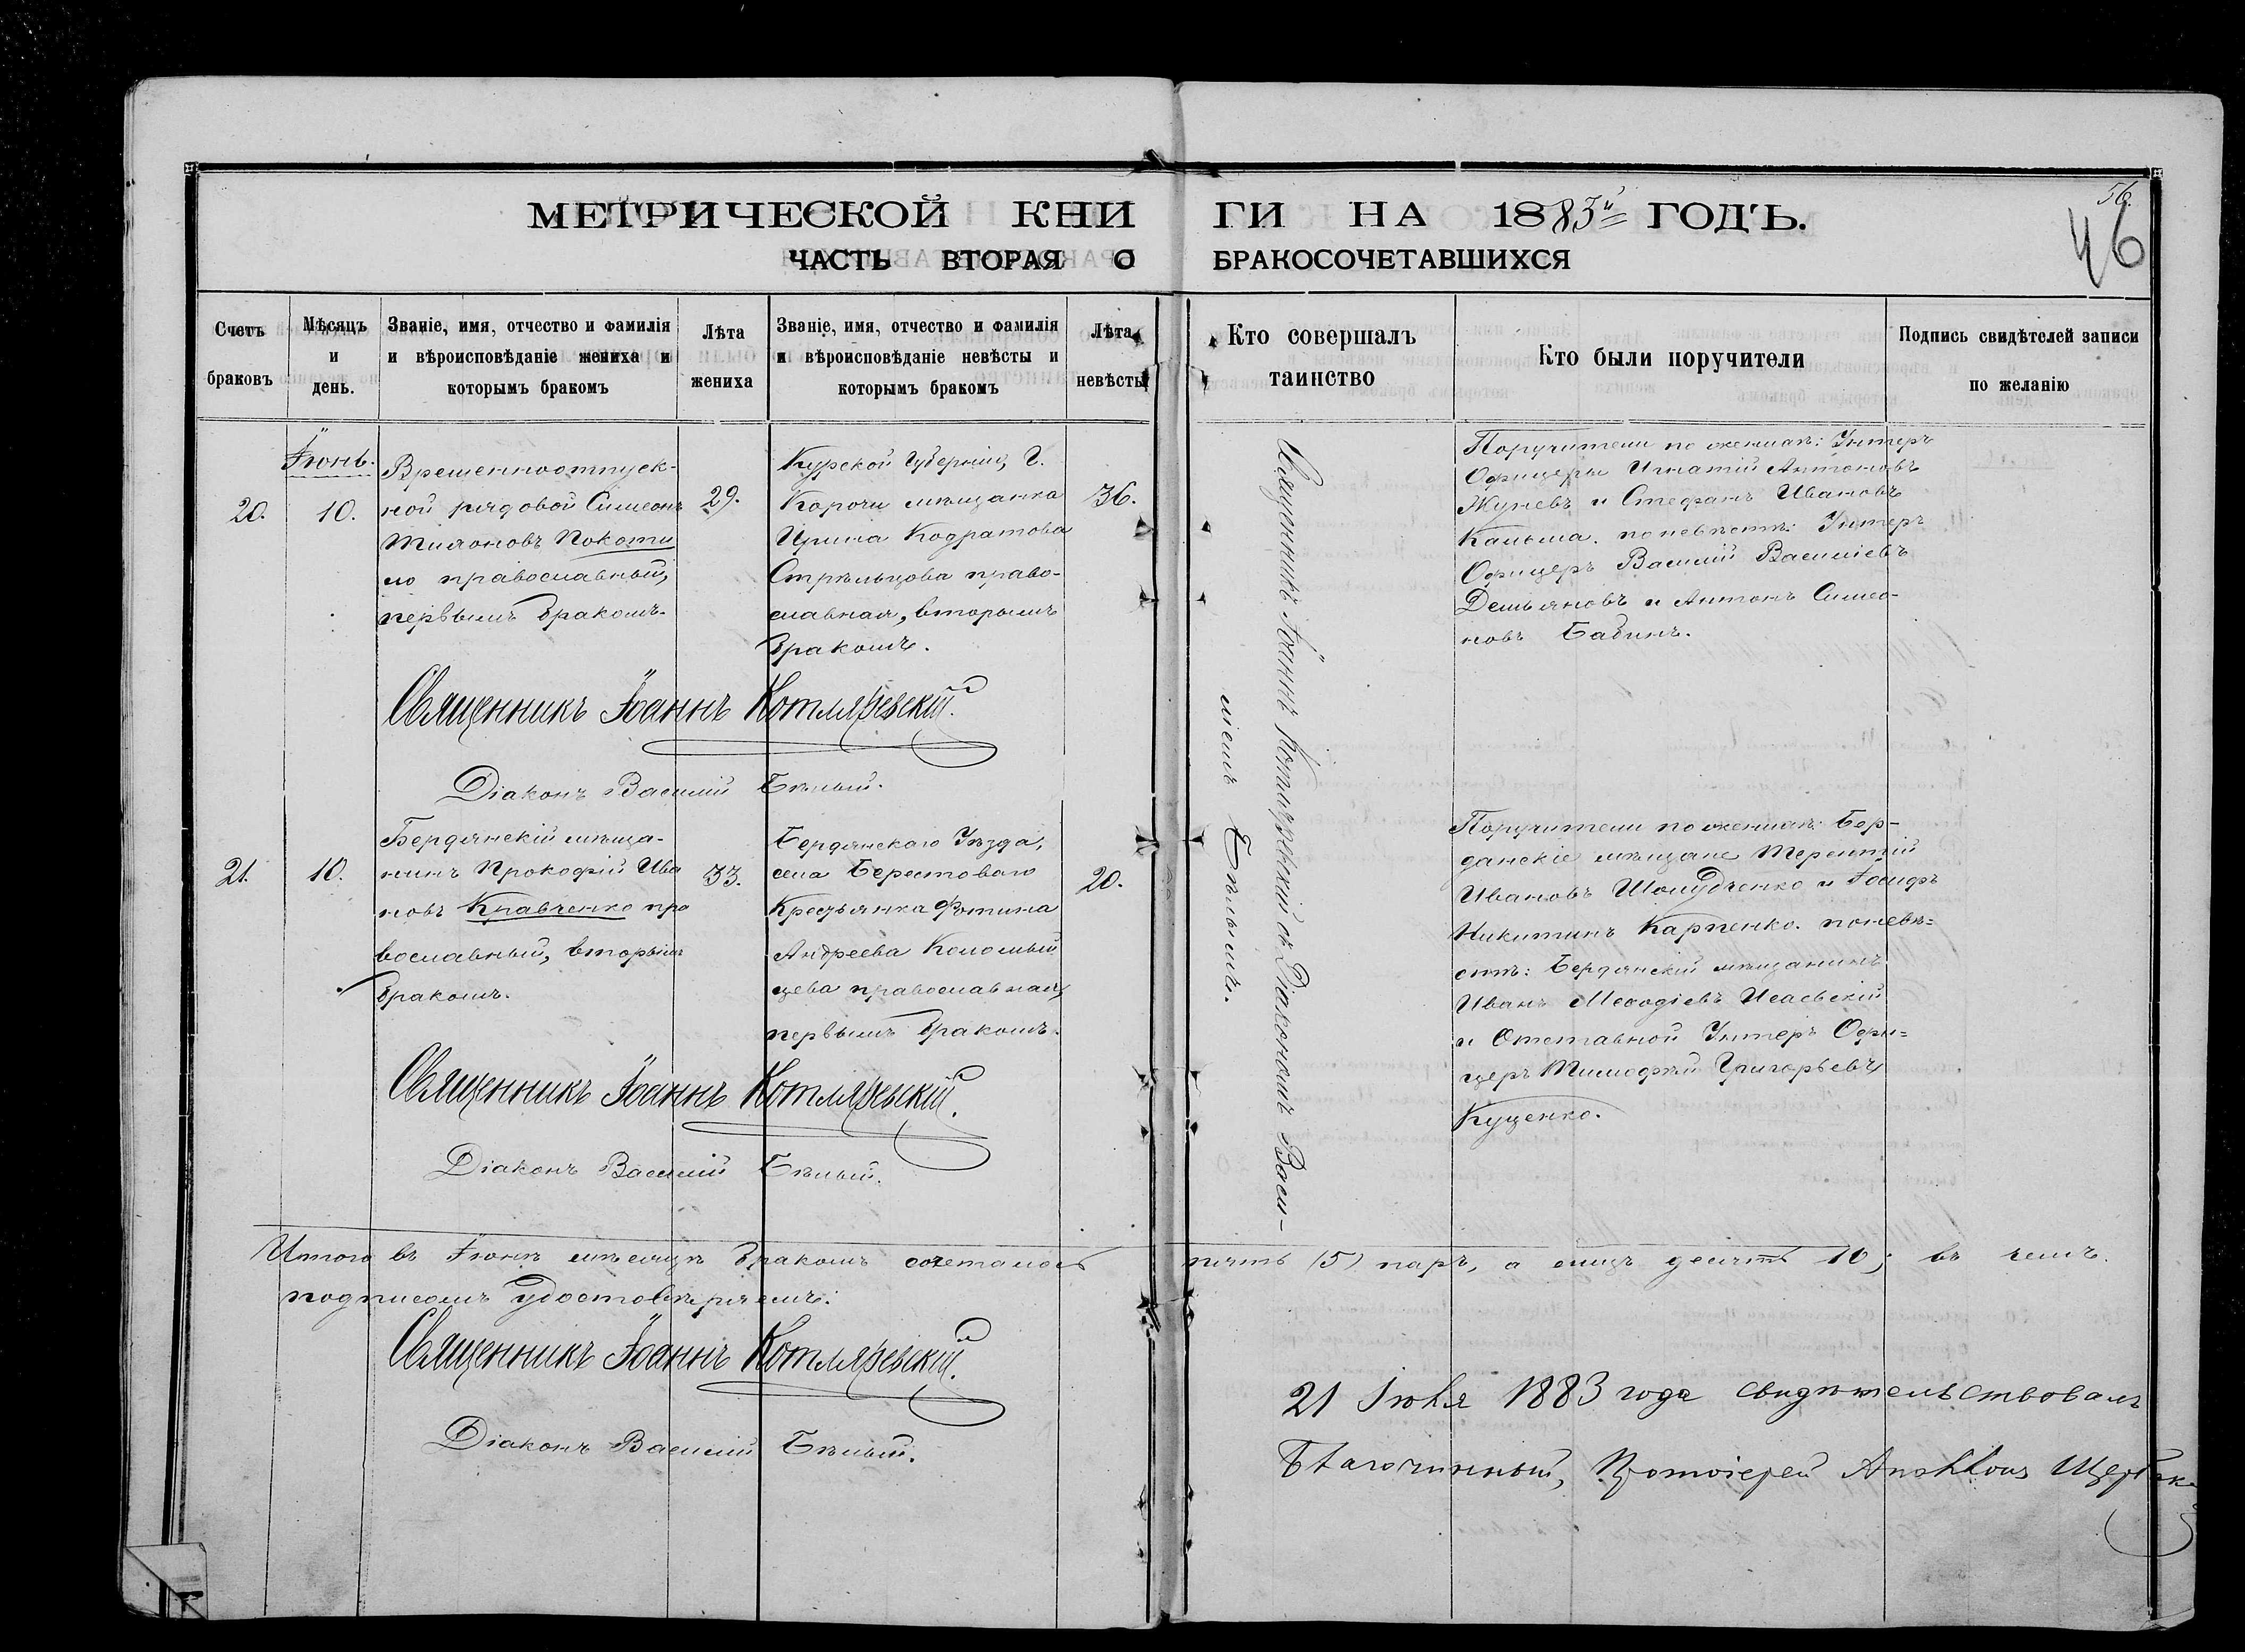 56.
46
МЕТРИЧЕСКОЙ КНИГИ НА 1883й ГОДЪ.
ЧАСТЬ ВТОРАЯ О БРАКОСОЧЕТАВШИХСЯ
Счетъ браковъ
Мѣсяцъ и день.
Званіе, имя, отчество и фамилія и вѣроисповѣданіе жениха и которымъ бракомъ
Лѣта жениха
Званіе, имя, отчество и фамилія и вѣроисповѣданіе невѣсты и которымъ бракомъ
Лѣта невѣсты
Кто совершалъ таинство
Кто были поручители
Подпись свидѣтелей записи по желанію
Іюнь.
20.
10.
Временноотпуск-
ной рядовой Симеонъ
Тимоновъ Покоти
ло православный,
первымъ бракомъ.
29.
Курской Губерніи, Г.
Корочи мѣщанка
Ирина Кодратова
Стрѣльцова право-
славная, вторымъ
бракомъ.
36.
Священникъ Іоаннъ Котляревскій съ Діакономъ Васи-
ліемъ Бѣлымъ.
Поручители по женихѣ: Унтеръ
Офицеры Игнатій Антоновъ
Жуневъ и Стефанъ Ивановъ
Кальма. по невѣстѣ: Унтеръ
Офицеръ Василій Василіевъ
Демьяновъ и Антонъ Симео-
новъ Бабинъ.
Священникъ Іоаннъ Котляревскій.
Діаконъ Василій Бѣлый.
21.
10.
Бердянскій мѣща-
нинъ Прокофій Ива
новъ Кравченко пра
вославный, вторымъ
бракомъ.
33.
Бердянскаго Уѣзда,
села Берестоваго
Крестьянка Фотина
Андреева Коломый
цева православная,
первымъ бракомъ.
20.
Поручители по женихѣ: Бер-
данскіе мѣщане Терентій
Ивановъ Шолудченко и Іосифъ
Никитинъ Карпенко. по невѣ=
стѣ: Бердянскій мѣщанинъ
Иванъ Меѳодіевъ Исаевскій
и Отставной Унтеръ Офи=
церъ Тимофѣй Григорьевъ
Куценко.
Священникъ Іоаннъ Котляревскій.
Діаконъ Василій Бѣлый.
Итого въ Іюнѣ мѣсяцѣ бракомъ сочеталось пять (5) паръ, а лицъ десять 10; въ чемъ
подписомъ удостовѣряемъ:
Священникъ Іоаннъ Котляревскій.
Діаконъ Василій Бѣлый.
21 Іюля 1883 года свидѣтельствовалъ
Благочинный, Протоіерей